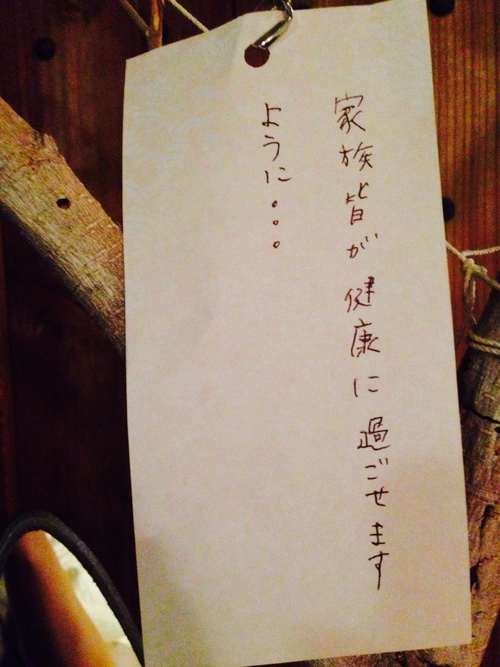 家族皆が健康に過ごせます
ように。。。